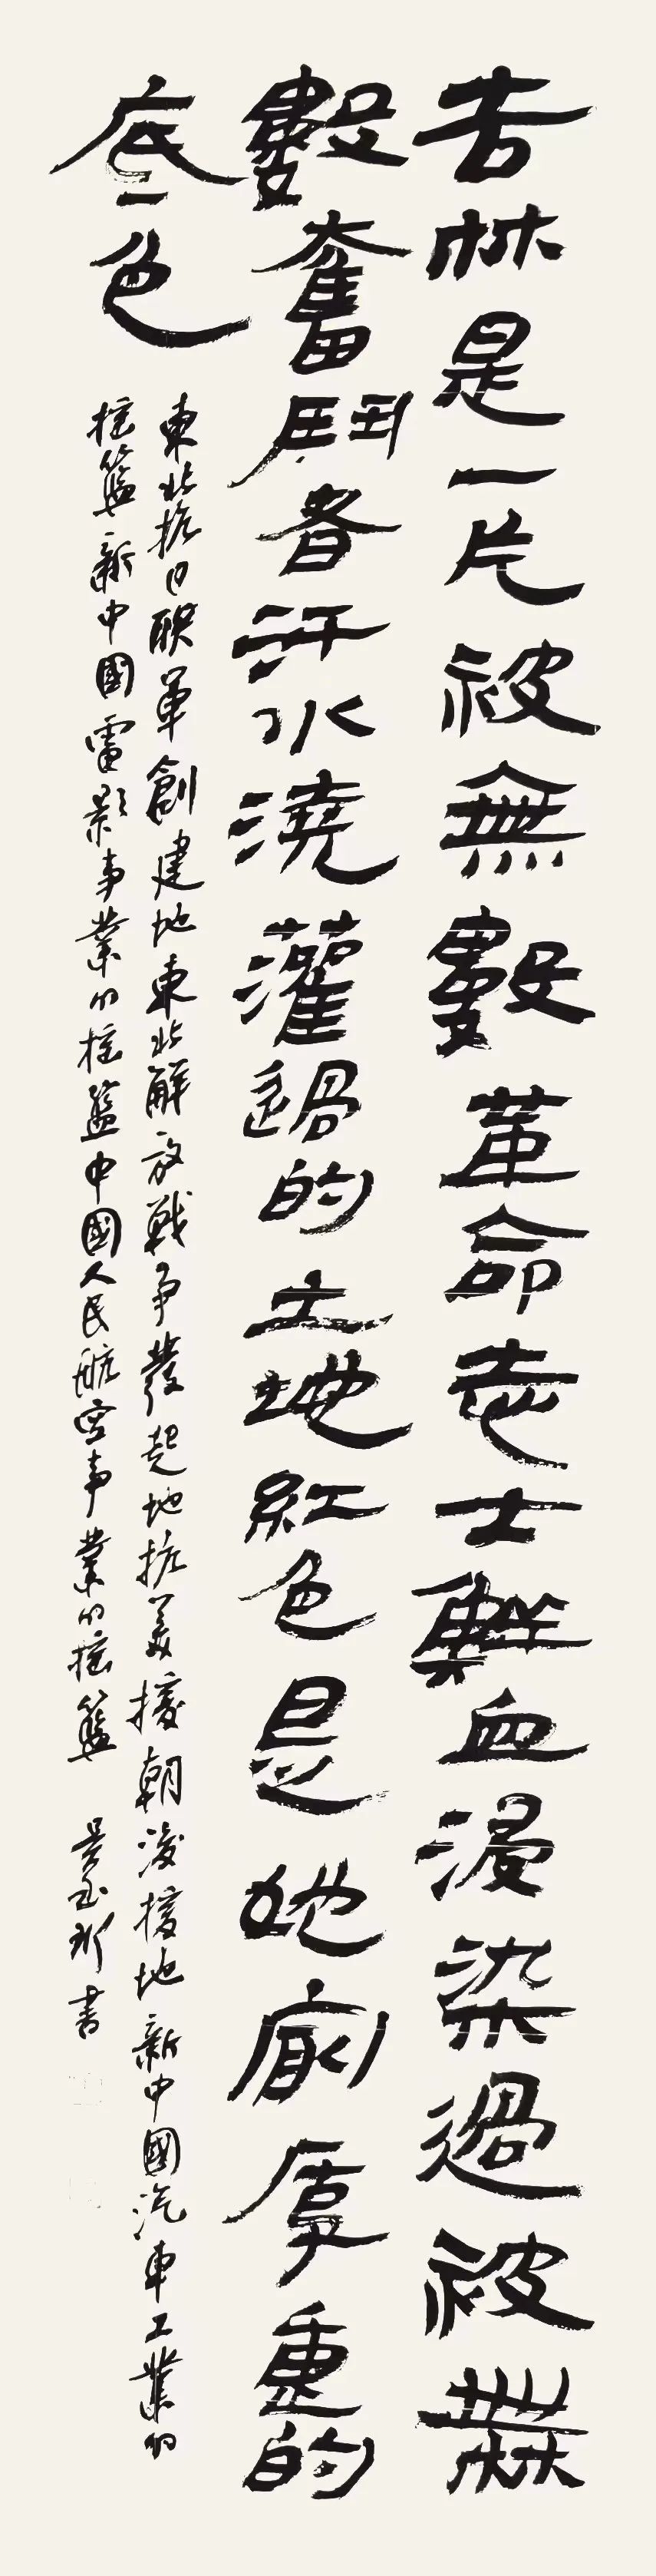 吉林是一片被無數革命志士鮮血浸染過被無
數奮鬥者汗水澆灌過的土地紅色是她最厚重的
底色
東北抗日聯軍創建地東北解放戰爭發起地抗美援朝後援地新中國汽車工業的
搖籃新中國電影事業的搖籃中國人民航空事業的搖籃 書